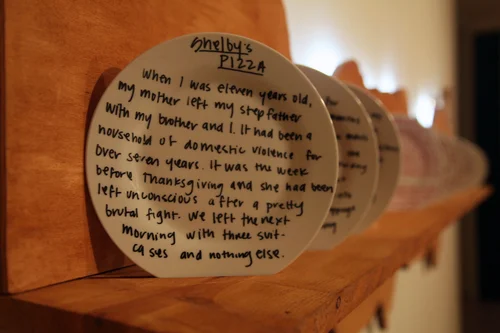 Shelby's
PIZZA
When I was eleven years old,
my mother left my stepfather
with my brother and I. It had been a
household of domestic violence for
over seven years. It was the week
before Thanksgiving and she had been
left unconscious after a pretty
brutal fight. We left the next
morning with three suit-
cases and nothing else.